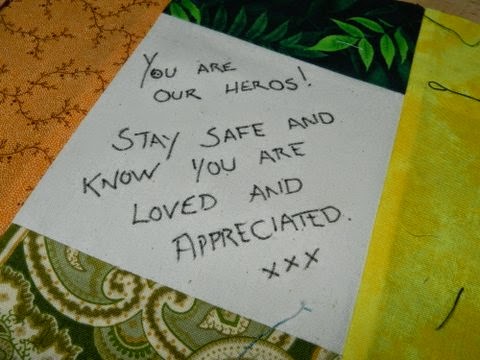 YOU ARE
OUR HEROS!
STAY SAFE AND
KNOW YOU ARE
LOVED AND
APPRECIATED.
xxx